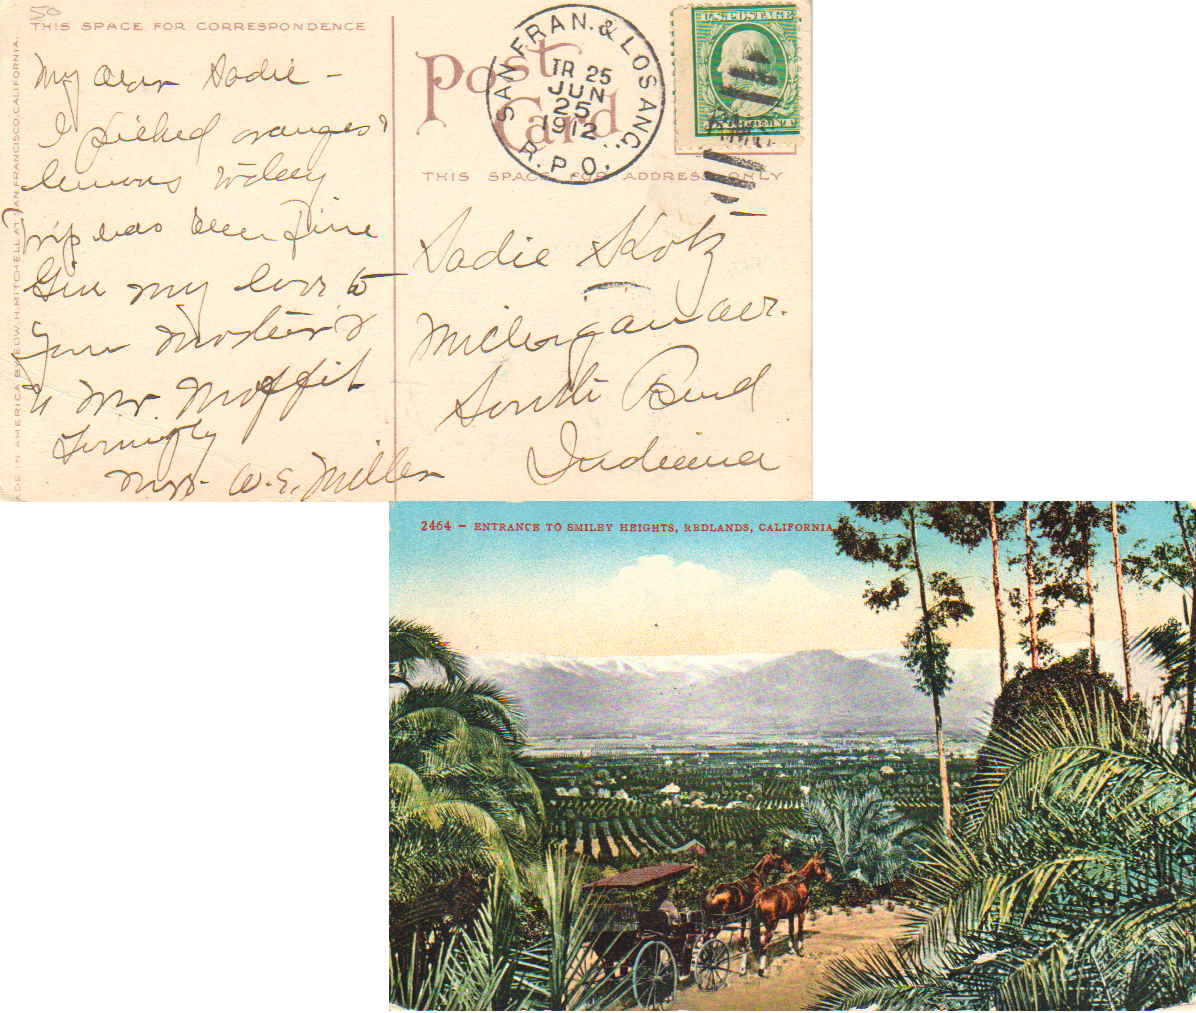 50
THIS SPACE FOR CORRESPONDENCE
My dear Sadie -
I picked oranges &
lemons today
Trip has been fine
Give my love to
Your Mother &
to Mr. Moffit
Lovingly
Mrs. W. E. Miller
MADE IN AMERICA BY EDW. H. MITCHELL AT SAN FRANCISCO, CALIFORNIA.
Post Card
SAN FRAN. & LOS ANG.
TR 25
JUN
25
1912
R.P.O.
U.S. POSTAGE
THIS SPACE FOR ADDRESS ONLY
Sadie Skotz
Michigan ave.
South Bend
Indiana
2464 - ENTRANCE TO SMILEY HEIGHTS, REDLANDS, CALIFORNIA